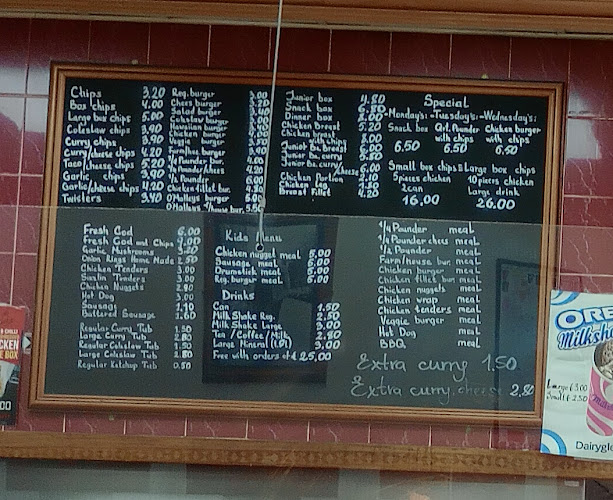 Chips 3.20
Box chips 4.00
Large box chips 5.00
Coleslaw chips 3.90
Curry chips 3.90
Curry/cheese chips 4.20
Taco/cheese chips 5.20
Garlic chips 3.90
Garlic/cheese chips 4.20
Twisters 3.40
Reg. burger 3.00
Chees burger 3.20
Salad burger
Coleslaw burger
Hawaiian burger
Chicken burger
Veggie burger
Farm/hse burger
1/4 Pounder bur. 4.00
1/4 Pounder/chees 4.20
1/2 Pounder
Chicken fillet bur.
O'Malleys bur.
O'Malleys /hause bur. 5.50
Junior box 4.80
Snack box 6.80
Dinner box 8.00
Chicken breast 5.20
Chicken breast
with chips
Junior Ba. burg
Junior Ba. curry
Junior Ba. curry/cheese
Chicken Portion
Chicken Leg
Breast Fillet 4.20
Special
Monday's: Tuesday's: Wednesday's:
Snack box Qrt. Pounder Chicken burger
with chips with chips
6.50 6.50 6.50
Small box chips Large box chips
5 pieces chicken 10 pieces chicken
2 can Large drink
16.00 26.00
Fresh Cod 6.00
Fresh Cod and Chips 9.00
Garlic Mushrooms 3.20
Onion Rings Home Made 2.50
Chicken Tenders 3.00
Sizzlin Tenders 3.00
Chicken Nuggets 2.80
Hot Dog 3.00
Sausage 1.10
Battered Sausage 1.60
Regular Curry Tub 1.50
Large Curry Tub 2.80
Regular Coleslaw Tub 1.50
Large Coleslaw Tub 2.80
Regular Ketchup Tub 0.50
Kids Menu
Chicken nugget meal 5.00
Sausage meal 5.00
Drumstick meal 5.00
Reg. burger meal 5.00
Drinks
Can 1.50
Milk Shake Reg. 2.50
Milk Shake Large 3.00
Tea / Coffee / Milk
Large Mineral
Free with orders of € 25,00
1/4 Pounder meal
1/4 Pounder chees meal
1/2 Pounder meal
Farm/house bur. meal
Chicken burger meal
Chicken fillet bun meal
Chicken nuggets meal
Chicken wrap meal
Chicken tenders meal
Veggie burger meal
Hot Dog meal
BBQ meal
Extra curry 1.50
Extra curry.cheese 2,80
CHILLI
BOX
ORE
Milksha
Large €3.00
Small € 2.50
Dairygle